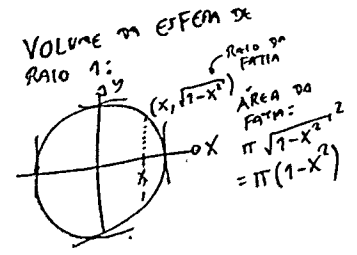 VOLUME DA ESFERA DE
RAIO 1:
y
(x, √1-x²)
RAIO DA
FATIA
x
X
ÁREA DA
FATIA:
π √1-x²²
= π(1-x²)